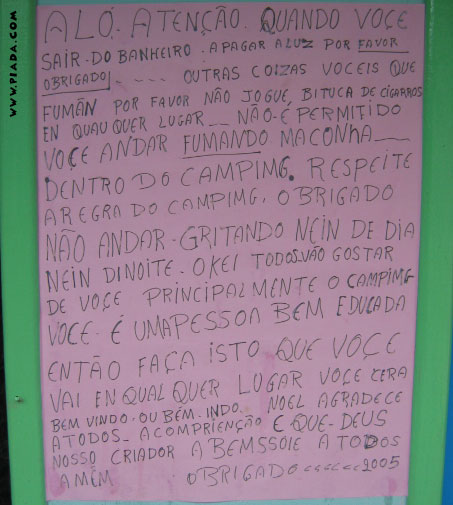 WWW.PIADA.COM
ALÔ. ATENÇÃO. QUANDO VOCE
SAIR. DO BANHEIRO. APAGAR A LUZ POR FAVOR
OBRIGADO!.... OUTRAS COIZAS VOCEIS QUE
FUMÃN POR FAVOR NÃO JOGUE, BITUCA DE CIGARROS
EN QUAUQUER LUGAR__ NÃO-É PERMITIDO
VOÇE ANDAR FUMANDO MACONHA__
DENTRO DO CAMPIMG. RESPEITE
A REGRA DO CAMPIMG. OBRIGADO
NÃO ANDAR-GRITANDO NEIN DE DIA
NEIN DINOITE. OKEI TODOS VÃO GOSTAR
DE VOÇE PRINCIPALMENTE O CAMPIMG
VOCE. É UMAPESSOA BEM EDUCADA
ENTÃO FAÇA ISTO QUE VOÇE
VAI EN QUAL QUER LUGAR VOCE CERA
BEM VINDO-OU BÉM-INDO. NOEL AGRADECE
ATODOS_ ACOMPRIENÇÃO E QUE-DEUS
NOSSO CRIADOR ABEMSSOIE ATODOS
AMÉM OBRIGADO <<<<<< 2005